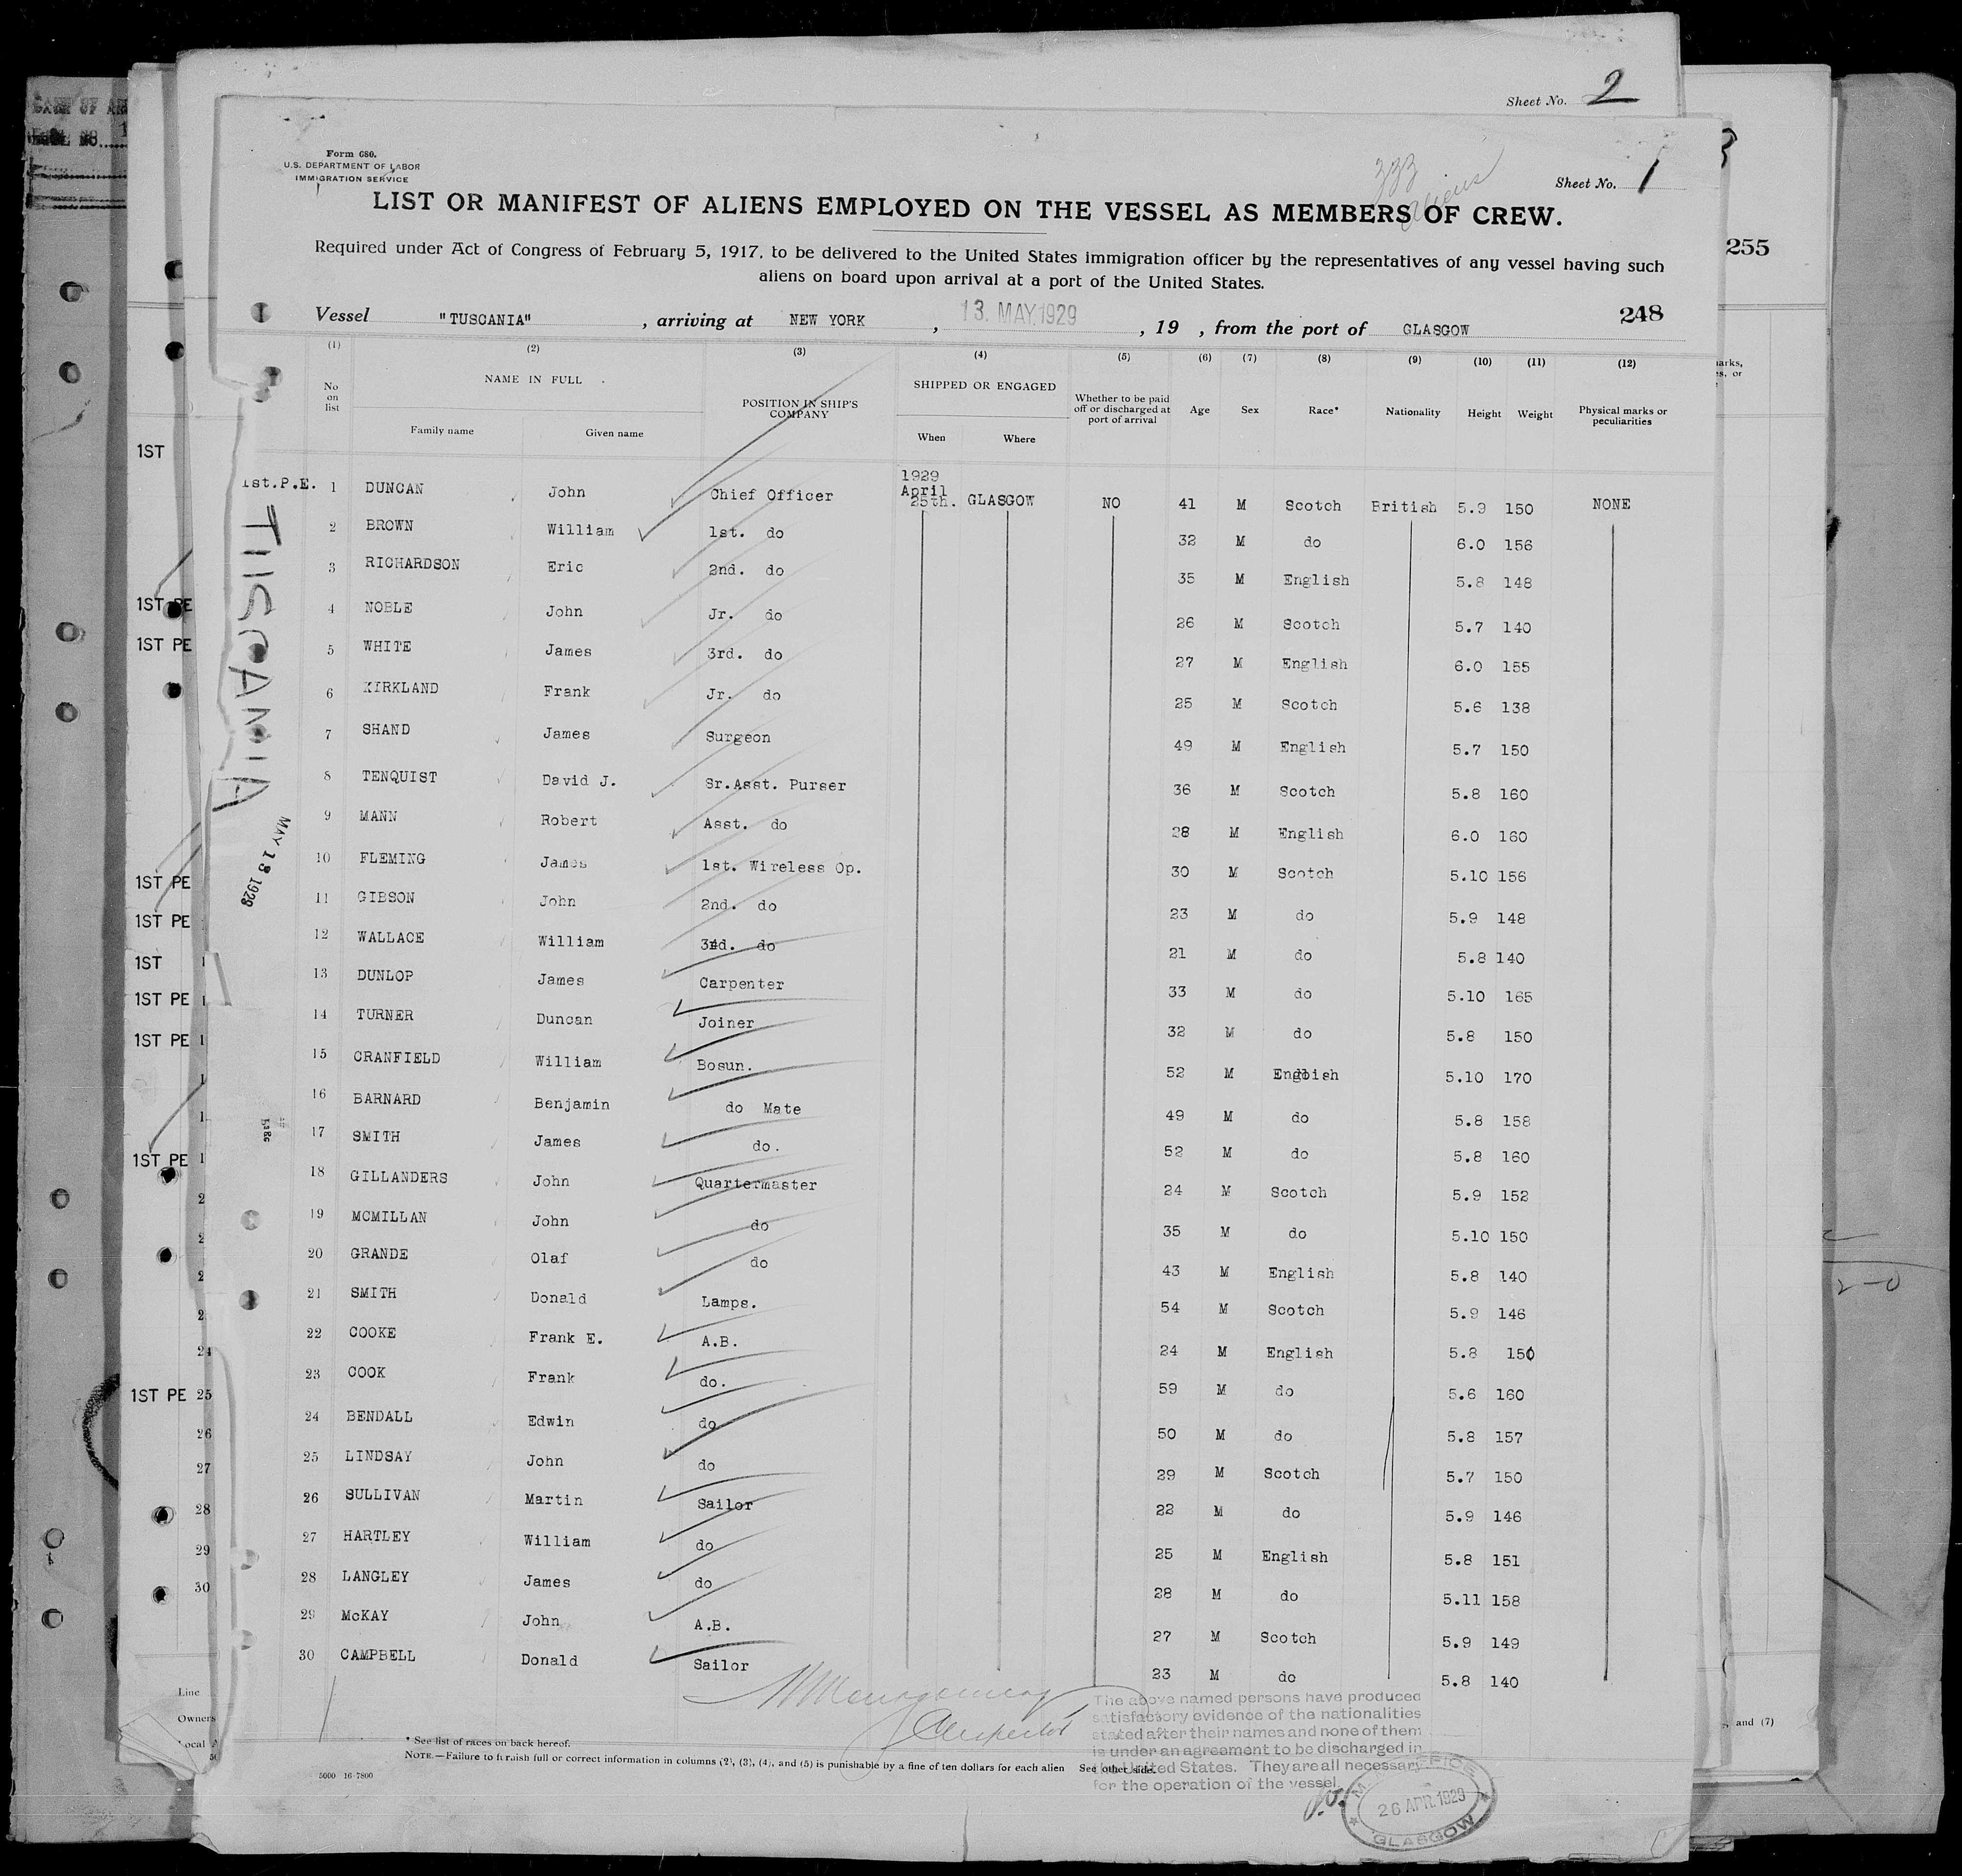 Sheet No. 2
Form 680.
U.S. DEPARTMENT OF LABOR
IMMIGRATION SERVICE
333 aliens
Sheet No. 1
LIST OR MANIFEST OF ALIENS EMPLOYED ON THE VESSEL AS MEMBERS OF CREW.
Required under Act of Congress of February 5, 1917, to be delivered to the United States immigration officer by the representatives of any vessel having such
aliens on board upon arrival at a port of the United States.
255
248
Vessel "TUSCANIA", arriving at NEW YORK, 13. MAY 1929, 19 , from the port of GLASGOW
(1) (2) (3) (4) (5) (6) (7) (8) (9) (10) (11) (12)
No on list NAME IN FULL POSITION IN SHIP'S COMPANY SHIPPED OR ENGAGED Whether to be paid off or discharged at port of arrival Age Sex Race* Nationality Height Weight Physical marks or peculiarities
Family name Given name When Where
1929
April
1st.P.E. 1 DUNCAN John Chief Officer 25th. GLASGOW NO 41 M Scotch British 5.9 150 NONE
2 BROWN William 1st. do 32 M do 6.0 156
3 RICHARDSON Eric 2nd. do 35 M English 5.8 148
4 NOBLE John Jr. do 26 M Scotch 5.7 140
5 WHITE James 3rd. do 27 M English 6.0 155
6 KIRKLAND Frank Jr. do 25 M Scotch 5.6 138
7 SHAND James Surgeon 49 M English 5.7 150
8 TENQUIST David J. Sr.Asst. Purser 36 M Scotch 5.8 160
9 MANN Robert Asst. do 28 M English 6.0 160
10 FLEMING James 1st. Wireless Op. 30 M Scotch 5.10 156
11 GIBSON John 2nd. do 23 M do 5.9 148
12 WALLACE William 3rd. do 21 M do 5.8 140
13 DUNLOP James Carpenter 33 M do 5.10 165
14 TURNER Duncan Joiner 32 M do 5.8 150
15 CRANFIELD William Bosun. 52 M English 5.10 170
16 BARNARD Benjamin do Mate 49 M do 5.8 158
17 SMITH James do. 52 M do 5.8 160
18 GILLANDERS John Quartermaster 24 M Scotch 5.9 152
19 MCMILLAN John do 35 M do 5.10 150
20 GRANDE Olaf do 43 M English 5.8 140
21 SMITH Donald Lamps. 54 M Scotch 5.9 146
22 COOKE Frank E. A.B. 24 M English 5.8 150
23 COOK Frank do. 59 M do 5.6 160
24 BENDALL Edwin do 50 M do 5.8 157
25 LINDSAY John do 29 M Scotch 5.7 150
26 SULLIVAN Martin Sailor 22 M do 5.9 146
27 HARTLEY William do 25 M English 5.8 151
28 LANGLEY James do 28 M do 5.11 158
29 McKAY John A.B. 27 M Scotch 5.9 149
30 CAMPBELL Donald Sailor 23 M do 5.8 140
TUSCANIA
MAY 13 1929
1ST
1ST PE
1ST PE
1ST PE
1ST PE
1ST
1ST PE
1ST PE
1ST PE
24
1ST PE 25
26
27
28
29
30
Line
Owners
Local
, and (7)
Inspector
The above named persons have produced
satisfactory evidence of the nationalities
stated after their names and none of them
is under an agreement to be discharged in
the United States. They are all necessary
for the operation of the vessel.
* See list of races on back hereof.
NOTE.—Failure to furnish full or correct information in columns (2), (3), (4), and (5) is punishable by a fine of ten dollars for each alien See other side.
5000 16-7800
OFFICE
26 APR. 1929
GLASGOW